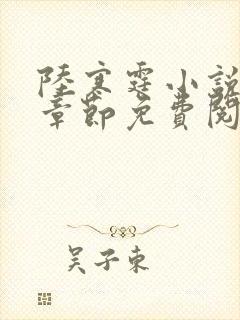 陸寒霆小説
章節免費閱
吴子東